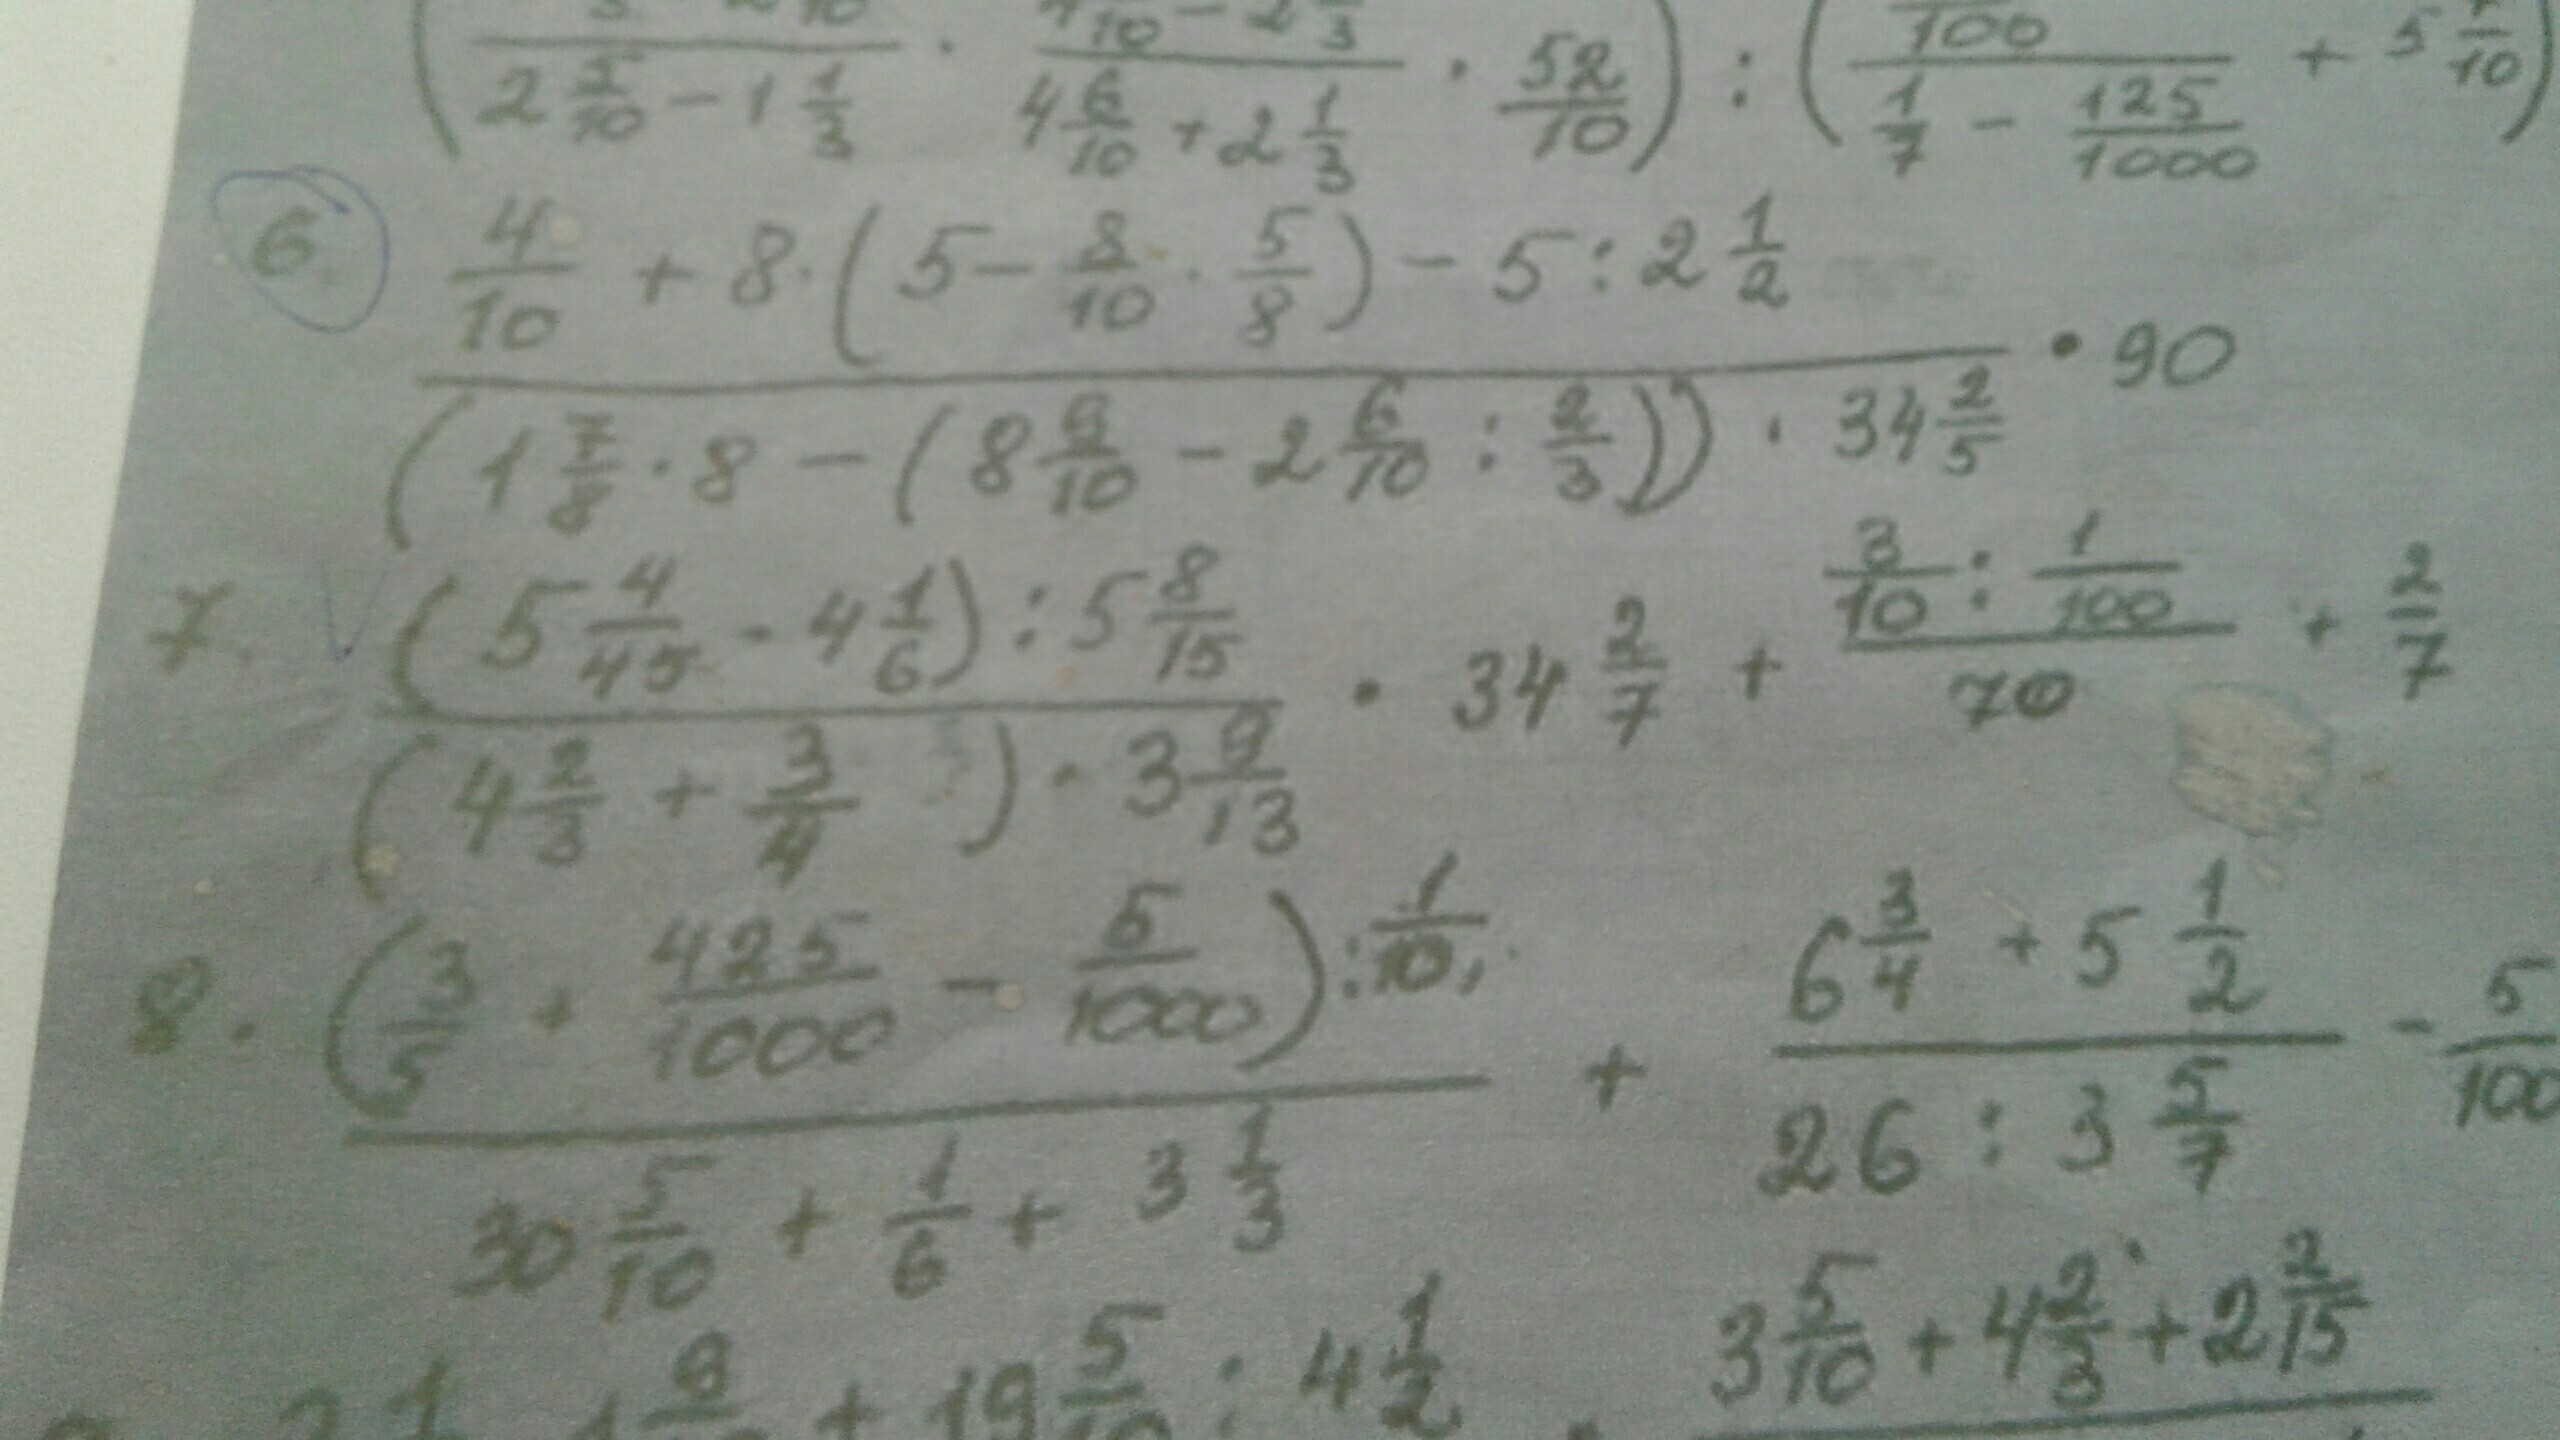 2 5/10 − 1 1/3 · 4 6/10 + 2 1/3 · 52/10) : (1/7 − 125/1000 + 5
6. 4/10 + 8 · (5 − 8/10 · 5/8) − 5 : 2 1/2
(1 7/8 · 8 − (8 9/10 − 2 6/10 : 2/3)) · 34 2/5 · 90
7. (5 4/45 - 4 1/6) : 5 8/15
(4 2/3 + 3/4) · 3 9/13 · 34 2/7 + 3/10 : 1/100
70 + 2/7
8. (3/5 + 425/1000 − 5/1000) : 1/10
30 5/10 + 1/6 + 3 1/3 + 6 3/4 + 5 1/2
26 : 3 5/7 - 5/100
+ 19 5/10 : 4 1/2 3 5/10 + 4 2/3 + 2 2/15